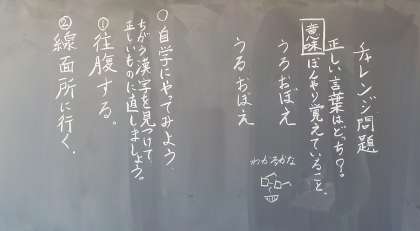 チャレンジ問題
正しい言葉はどっち?
意味 ぼんやり覚えていること。
うろおぼえ
うるおぼえ
わかるかな
○自学にやってみよう。
ちがう漢字を見つけて
正しいものに直しましょう。
①往腹する。
②線面所に行く。